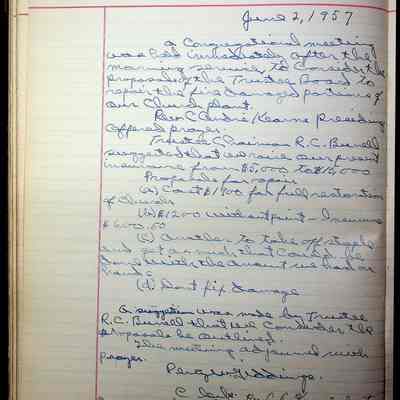 June 2, 1957
a Congregational meeting
was held immediately after the
morning service, to consider the
proposal of the Trustee Board to
repair the fire damaged portions of
our Church plant.
Rev. C. André Kearns presiding
offered prayer.
Trustee Chairman R.C. Burrell
suggested that we raise our present
insurance from $5,000 to $15,000
Proposals for repair
(a) Cost $1900 for full restoration
of Church
(b) $1200 without paint - Insurance
$600.00
(c) Another to take off steeple
and get as much that could be
done with the amount we had on
hand
(d) Don't fix damage
a suggestion was made by Trustee
R.C. Burrell that we consider the
proposals he outlined.
The meeting adjourned with
prayer.
Clerk